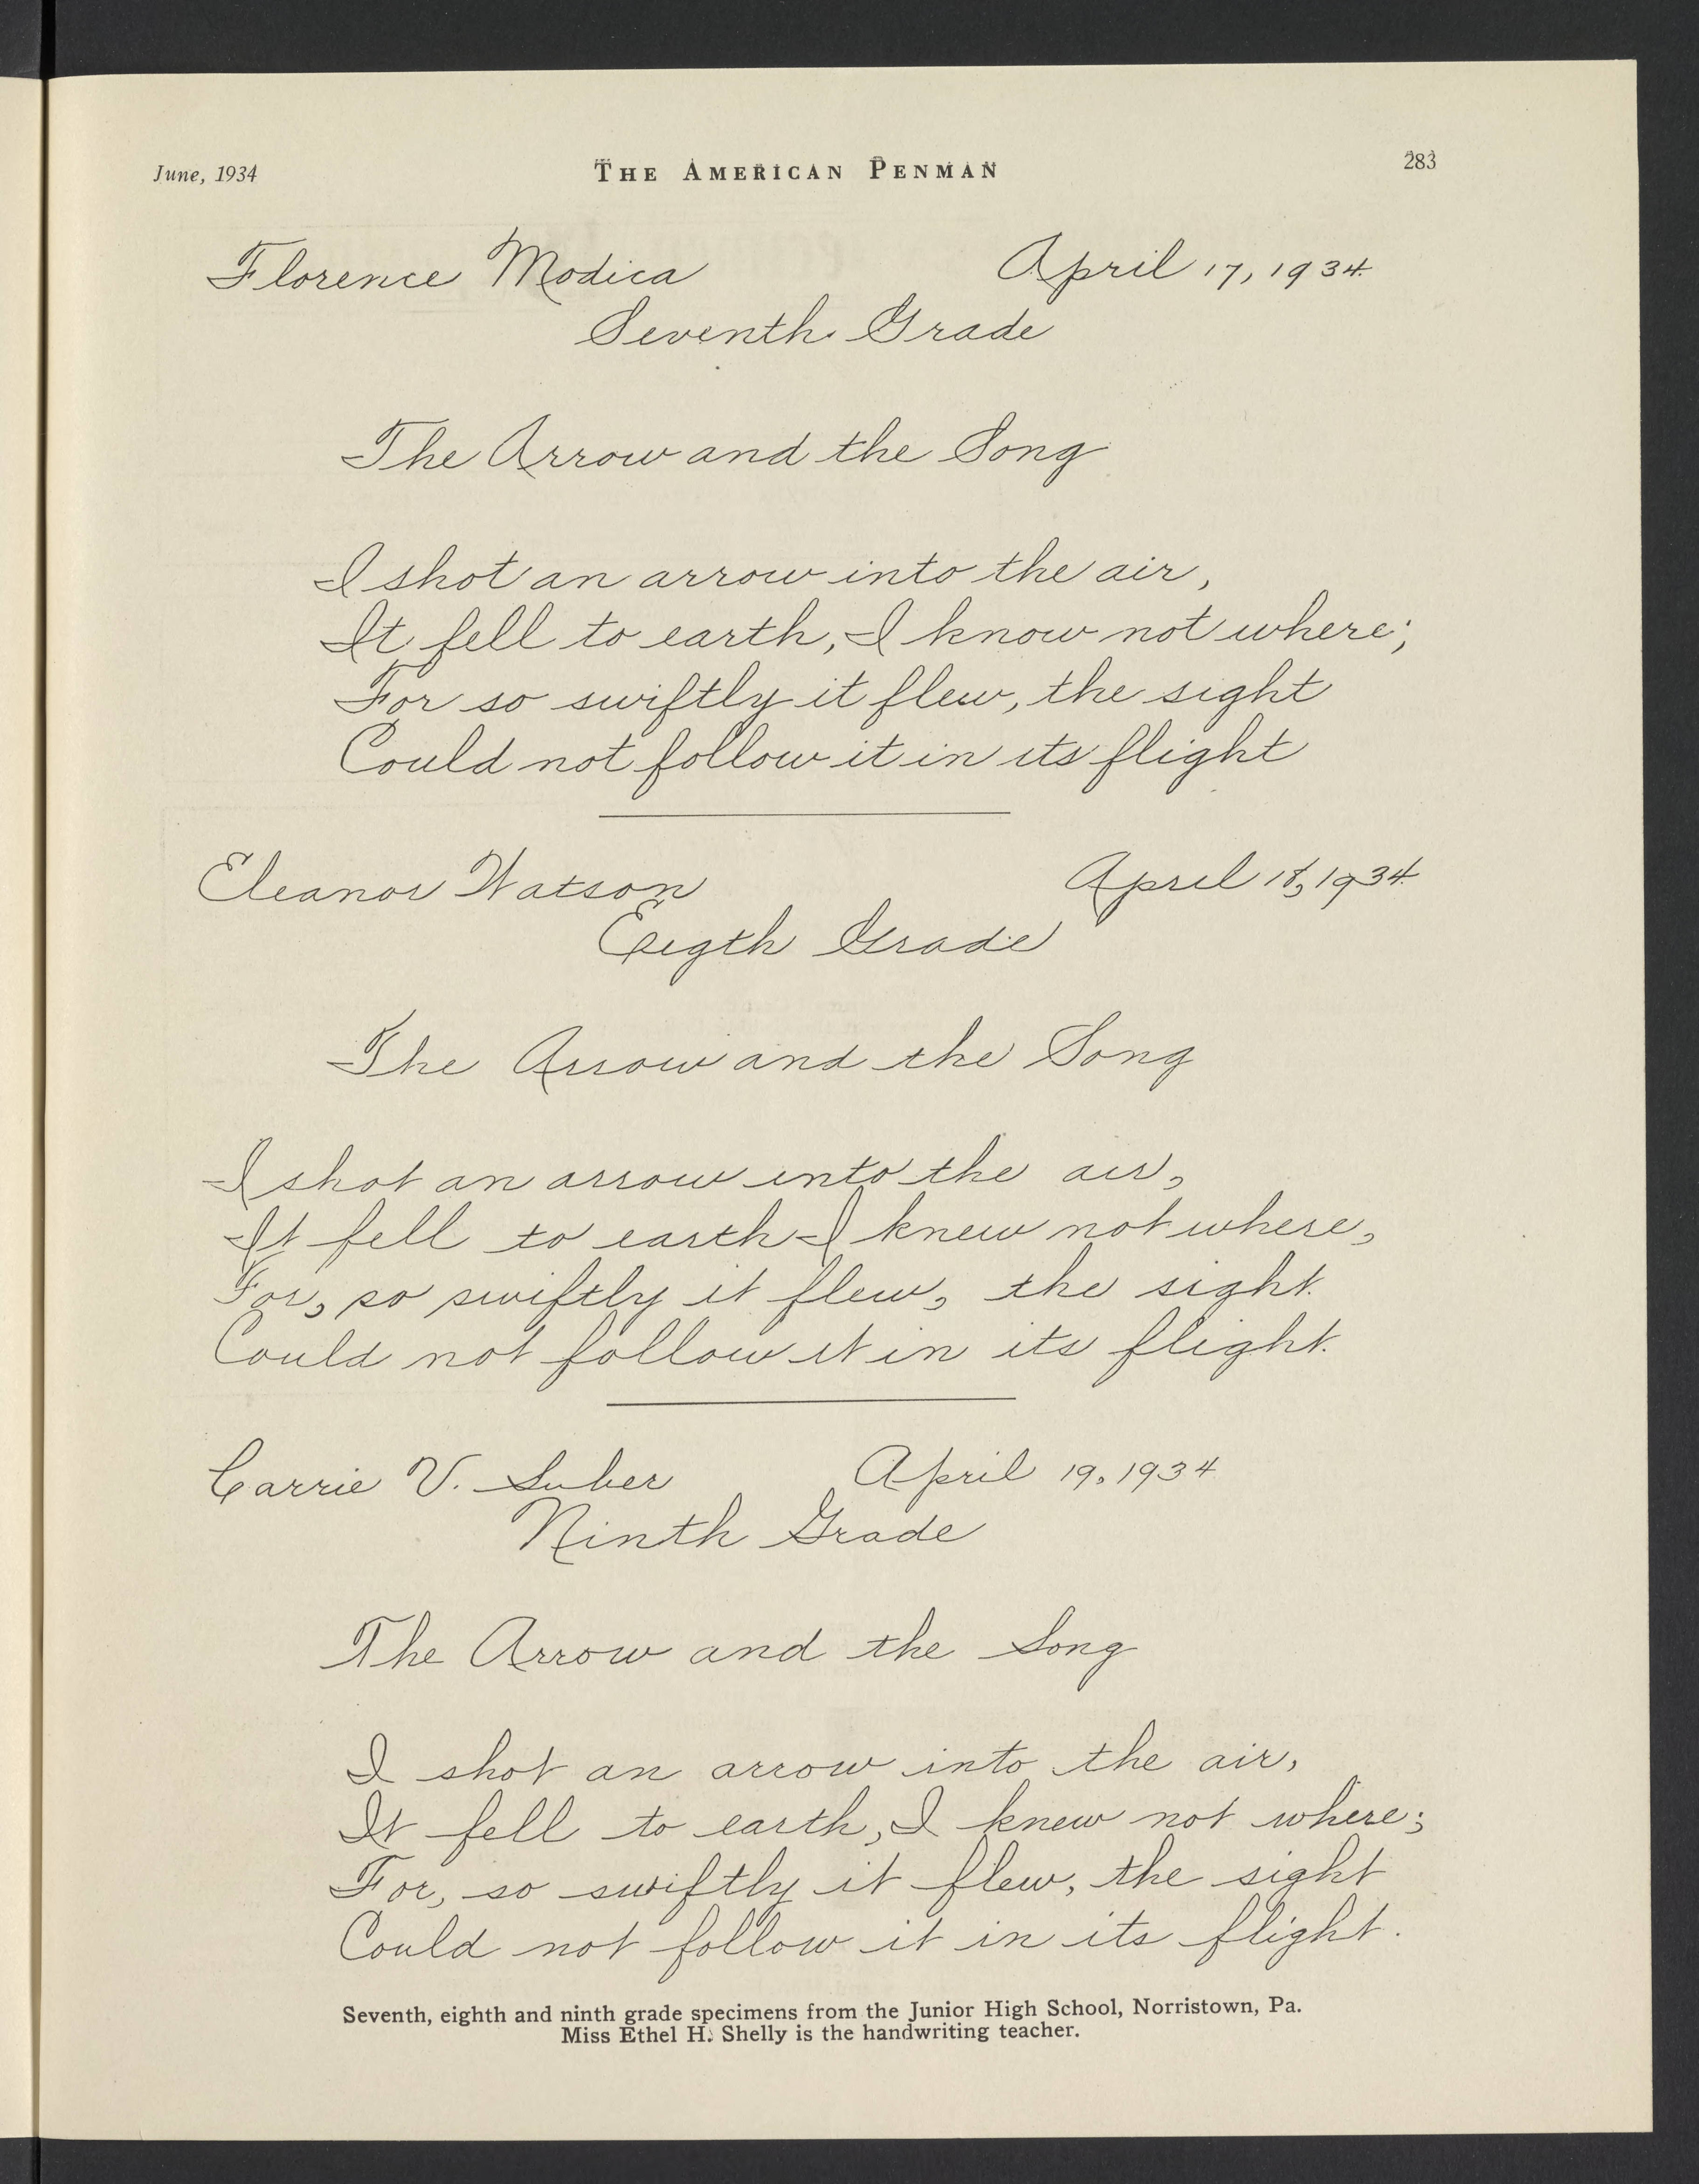 June, 1934 THE AMERICAN PENMAN 283
Florence Modica April 17, 1934.
Seventh Grade
The Arrow and the Song
I shot an arrow into the air,
It fell to earth, I know not where;
For so swiftly it flew, the sight
Could not follow it in its flight
Eleanor Watson April 18, 1934.
Eigth Grade
The Arrow and the Song
I shot an arrow into the air,
It fell to earth I knew not where,
For, so swiftly it flew, the sight.
Could not follow it in its flight.
Carrie V. Suber April 19, 1934
Ninth Grade
The Arrow and the Song
I shot an arrow into the air,
It fell to earth, I knew not where;
For, so swiftly it flew, the sight
Could not follow it in its flight.
Seventh, eighth and ninth grade specimens from the Junior High School, Norristown, Pa.
Miss Ethel H. Shelly is the handwriting teacher.